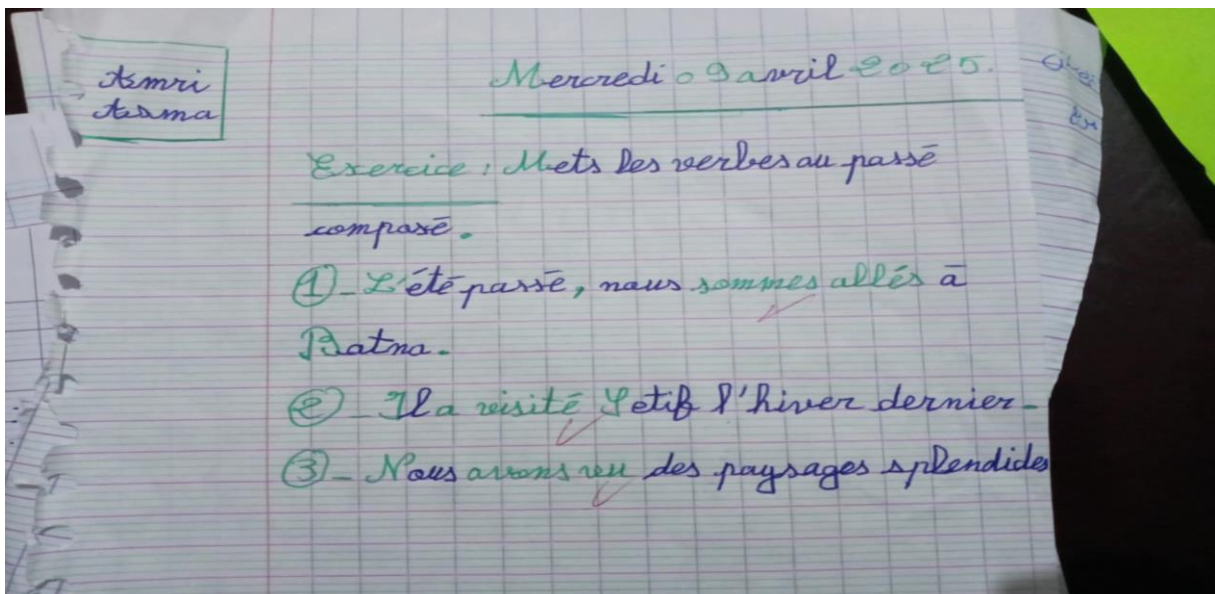 Asmri
Asma
Mercredi 09 avril 2025.
Exercice : Mets les verbes au passé
composé.
① - L'été passé, nous sommes allés à
Batna.
② - Il a visité Setif l'hiver dernier -
③ - Nous avons vu des paysages splendides